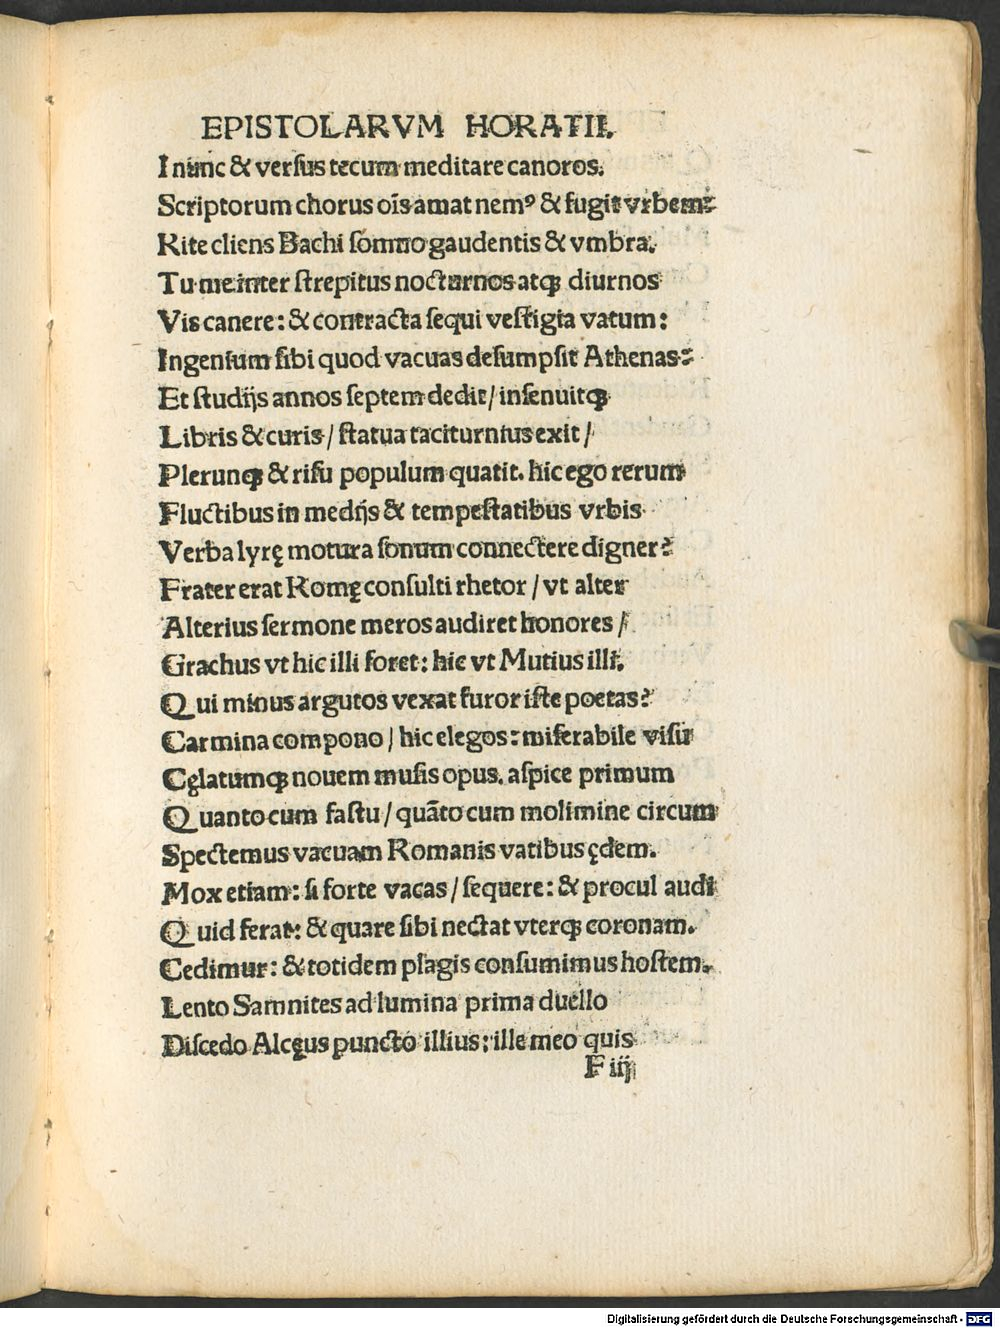 EPISTOLARVM HORATII.
I nunc & verſus tecum meditare canoros.
Scriptorum chorus oīs amat nemꝰ & fugit vrbem:
Rite cliens Bachi ſomno gaudentis & vmbra.
Tu me inter ſtrepitus nocturnos atqꝫ diurnos
Vis canere: & contracta ſequi veſtigia vatum:
Ingenium ſibi quod vacuas deſumpſit Athenas:
Et ſtudijs annos ſeptem dedit / inſenuitqꝫ
Libris & curis / ſtatua taciturnius exit /
Plerunqꝫ & riſu populum quatit. hic ego rerum
Fluctibus in medijs & tempeſtatibus vrbis
Verba lyrę motura ſonum connectere digner?
Frater erat Romę conſulti rhetor / vt alter
Alterius ſermone meros audiret honores /
Grachus vt hic illi foret: hic vt Mutius illi.
Qui minus argutos vexat furor iſte poetas?
Carmina compono / hic elegos: miſerabile viſu
Cęlatumqꝫ nouem muſis opus. aſpice primum
Quanto cum faſtu / quāto cum molimine circum
Spectemus vacuam Romanis vatibus ędem.
Mox etiam: ſi forte vacas / ſequere: & procul audi
Quid ferat: & quare ſibi nectat vterqꝫ coronam.
Cedimur: & totidem plagis conſumimus hoſtem.
Lento Samnites ad lumina prima duello
Diſcedo Alcęus puncto illius: ille meo quis
F iij
Digitalisierung gefördert durch die Deutsche Forschungsgemeinschaft - DFG